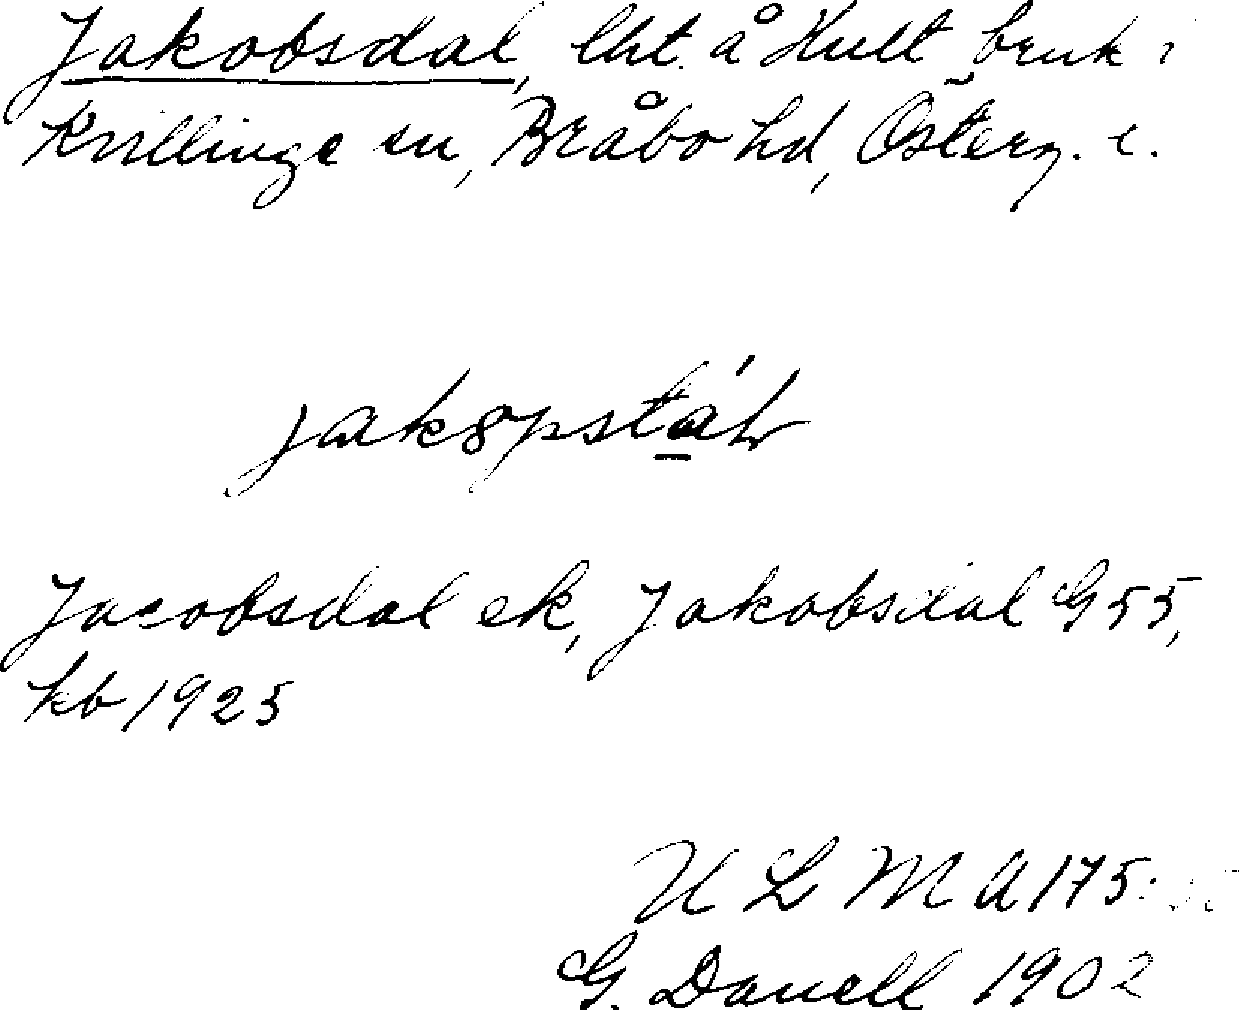 Jakobsdal, lht. å Hult bruk i
Kvillinge sn, Bråbo hd, Österg. l.
jakopstál
Jacobsdal ek, Jakobsdal G 55,
kb 1925
U L M A 175:
G. Danell 1902